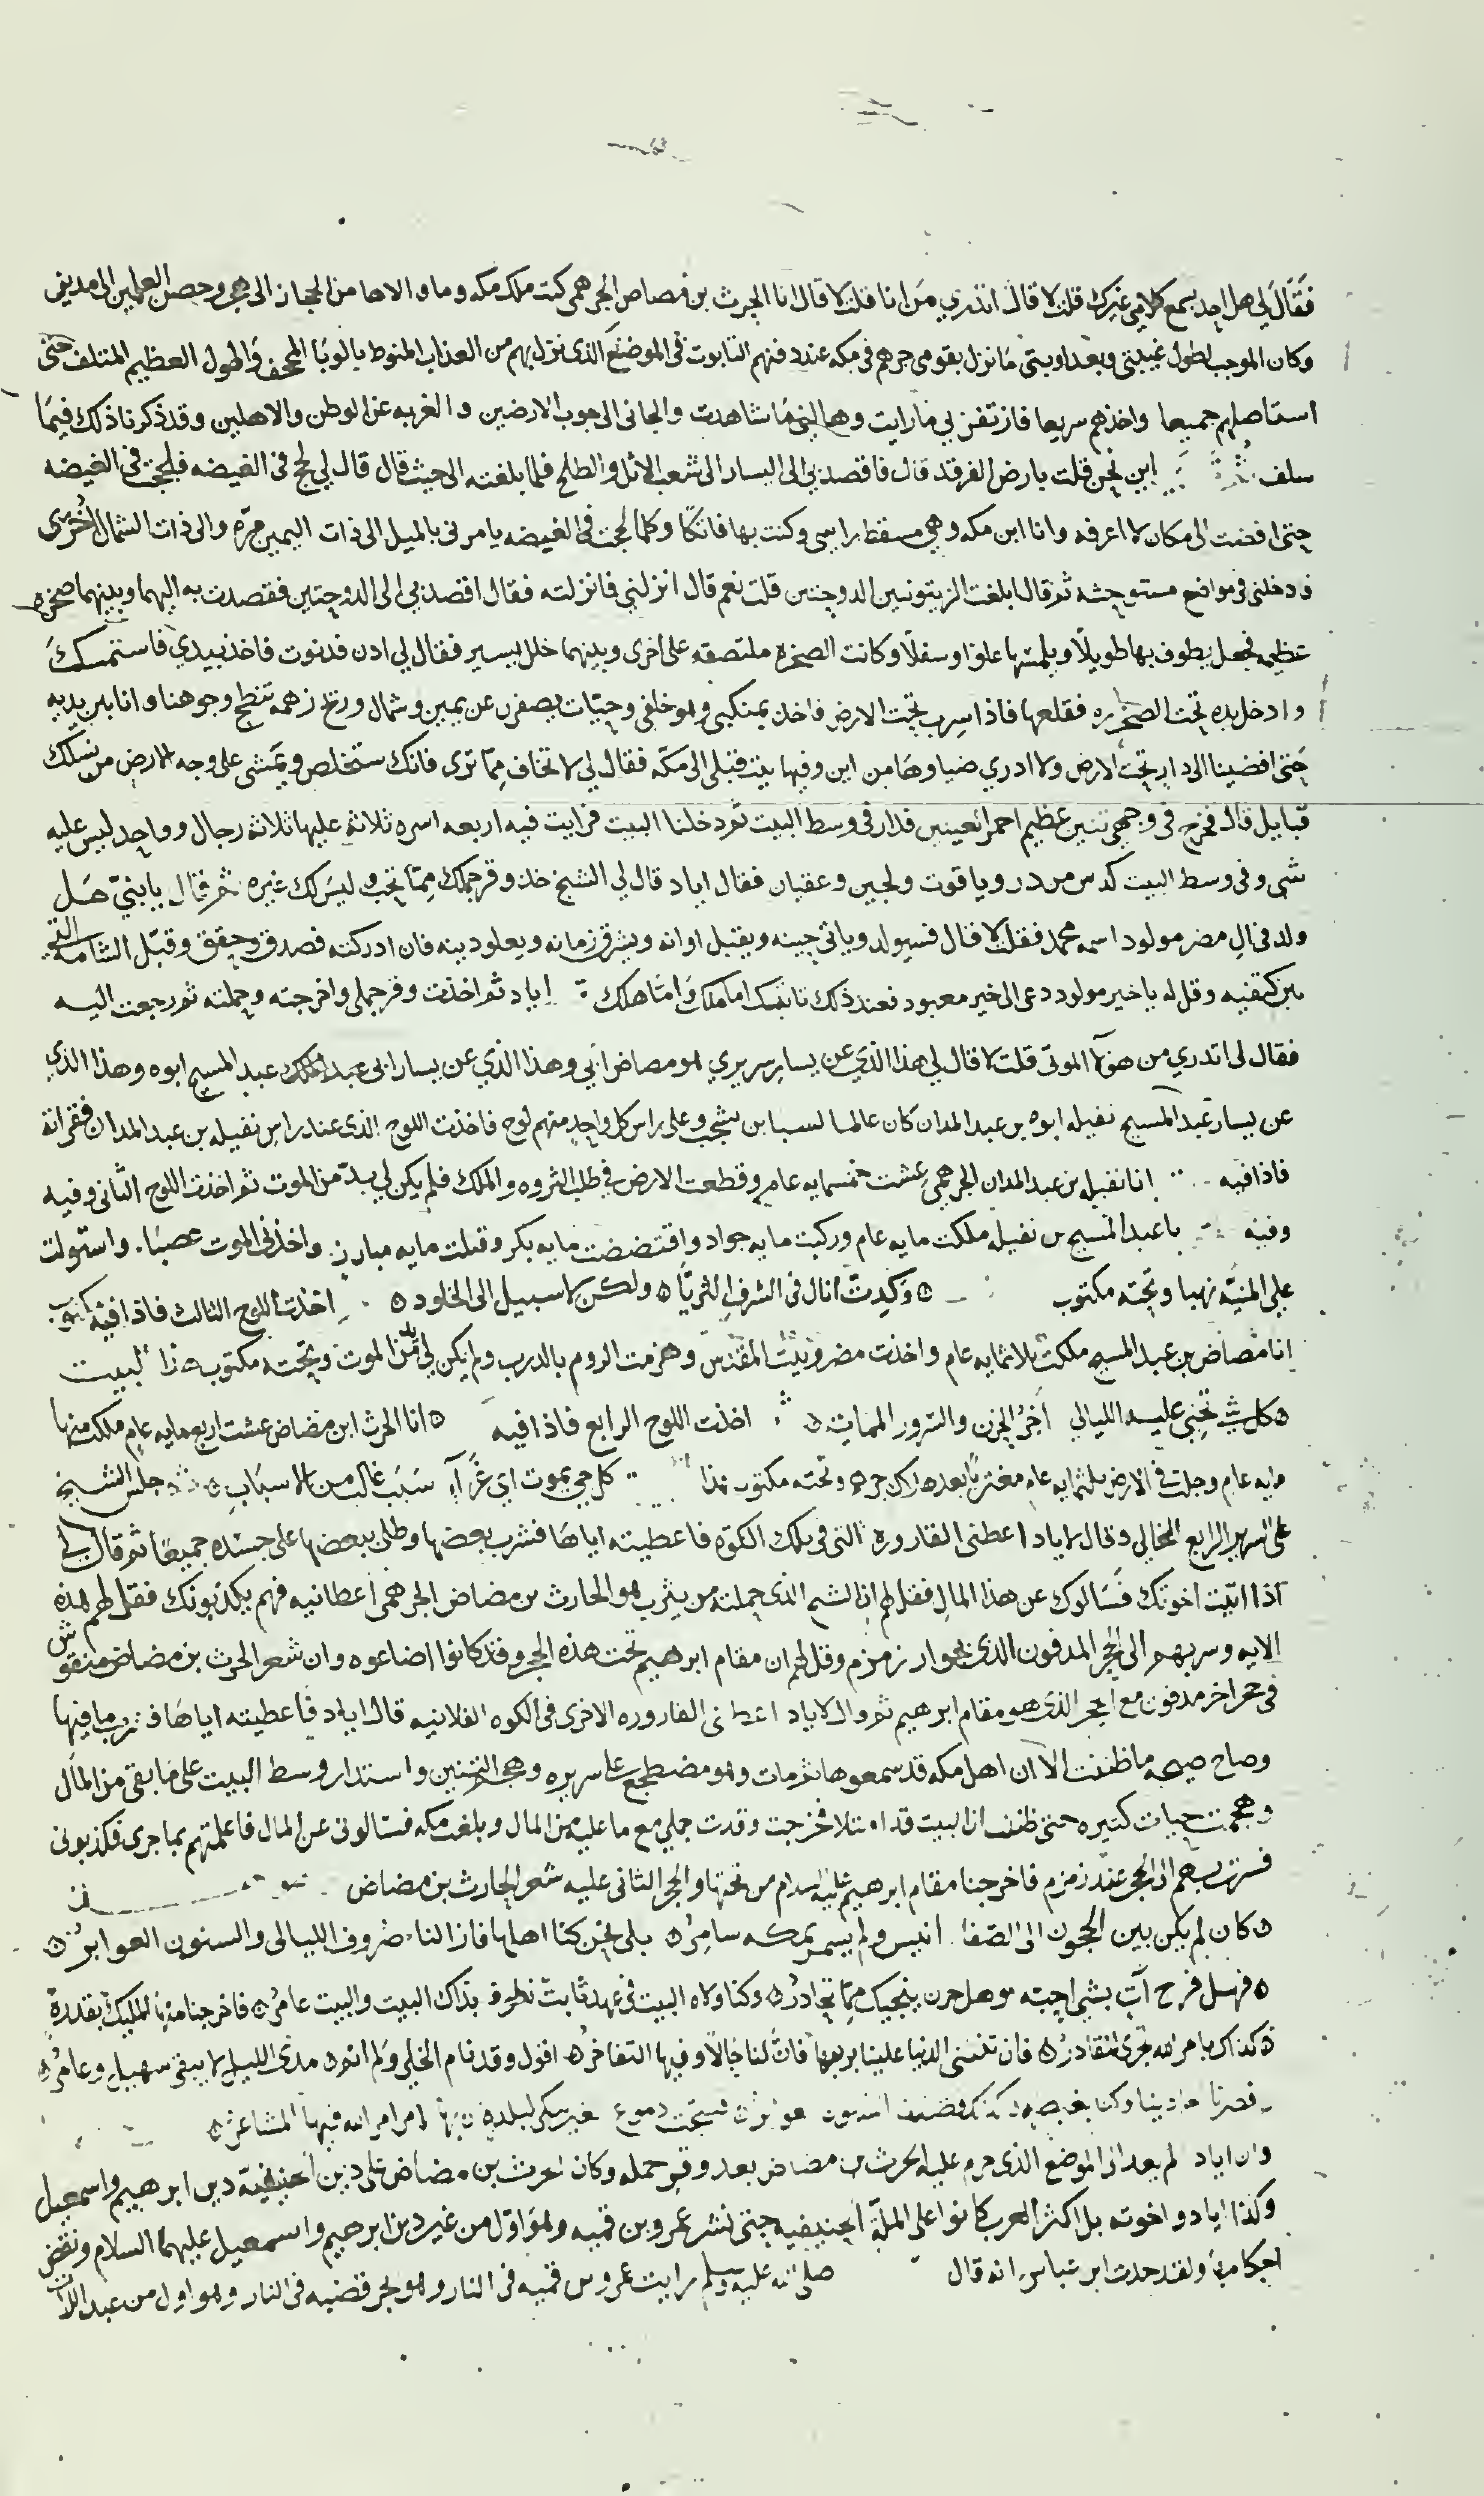 فقال لي هل احد يسمع كلامي غيرك قلت لا قال اتدري من انا قلت لا قال انا الحرث بن مضاض الجرهمي كنت ملك مكه وما والاها من الحجاز الى هجر وحصن
وكان الموجب لطول غيبتي وبعد اوبتي ما نزل بقومي جرهم في مكه عند دفنهم التابوت في الموضع الذي نزل بهم من العذاب المنوط بالوبا المجحف والهول العظيم المتلف حتى
استاصلهم جميعا واخذهم سريعا فازتفز بي ما رايت وهالني ما شاهدت والجاني الى جوب الارضين والغربه عن الوطن والاهلين وقد ذكرنا ذلك فيما
سلف اين نحن قلت بارض الفرقد قال فاقصد بي الى اليسار الى شعب الاثل والطلح فلما بلغته الى حيث قال قال لي لج في الغيضه فلججت في الغيضه
حتى افضت الى مكان لا اعرفه وانا ابن مكه وهي مسقط راسي وكنت بها فاتكا وكلما لججت في الغيضه يامرني بالميل الى ذات اليمين مرة والى ذات الشمال اخرى
فدخلني في مواضع مستوحشه ثم قال ابلغت الزيتونتين الدوحتين قلت نعم قال انزلني فانزلته فقال اقصد بي الى الدوحتين فقصدت به اليهما وبينهما صخره
عظيمه فجعل يطوف بها طويلا ويلمسها علوا وسفلا وكانت الصخره ملتصقه على اخرى وبينهما خلل يسير فقال لي ادن فدنوت فاخذ بيدي فاستمسك
وادخل يده تحت الصخره فقلعها فاذا سرب تحت الارض فاخذ بمنكبي وهو خلفي وحيات يصفرن عن يمين وشمال وريح زهمه تنطح وجوهنا وانا بين يديه
حتى افضينا الى دار تحت الارض ولا ادري ضياوها من اين وفيها بيت قبلي الى مكه فقال لي لا تخاف مما ترى فانك ستخلص ويمشي على وجه الارض من نسلك
قبايل قال فخرج في وجهي تنين عظيم احمر العينين فدار في وسط البيت ثم دخلنا البيت فرايت فيه اربعه اسره ثلاثة عليها ثلاثة رجال وواحد ليس عليه
شي وفي وسط البيت كدس من در وياقوت ولجين وعقيان فقال اياد قال لي الشيخ خذ وقر جملك مما تحب وليس لك غيره ثم قال يا بني هل
ولد في ال مضر مولود اسمه محمد فقلت لا قال فسيولد وياتي حينه ويقبل اوانه ويشرق زمانه ويعلو دينه فان ادركته فصدق وحقق وقبل الشامه التي
بين كتفيه وقل له يا خير مولود دعى الى خير معبود فعند ذلك اما ملك واما هلك اياد ثم اخذت وقر جملي واخرجته وحملته ثم رجعت اليه
فقال لي اتدري من هولا الموتى قلت لا قال لي هذا الذي عن يسار سريري هو مضاض ابي وهذا الذي عن يسار ابي عبد المسيح ابوه وهذا الذي
عن يسار عبد المسيح نفيله ابوه بن عبد المدان كان عالما لسبا بن يشجب وعلى راس كل واحد منهم لوح فاخذت اللوح الذي عند راس نفيله بن عبد المدان فقراته
فاذا فيه انا نفيله بن عبد المدان الجرهمي عشت خمسمايه عام وقطعت الارض في طلب الثروه والملك فلم يكن لي بد من الموت ثم اخذت اللوح الثاني وفيه
وفيه يا عبد المسيح بن نفيله ملكت مايه عام وركبت مايه جواد وافتضضت مايه بكر وقتلت مايه مبارز واخذني الموت غصبا واستولت
علي المنيه نهبا وتحته مكتوب وكدت انال في الشرف الثريا ولكن لا سبيل الى الخلود اخذت اللوح الثالث فاذا فيه مكتوب
انا مضاض بن عبد المسيح ملكت ثلاثمايه عام واخذت مضر وبيت المقدس وهزمت الروم بالدرب ولم يكن لي بد من الموت وتحته مكتوب هذا البيت
كل شي تحني عليه الليالي اخر الحزن والسرور الممات اخذت اللوح الرابع فاذا فيه انا الحرث ابن مضاض عشت اربعمايه عام ملكت منها
مايه عام وجلت في الارض ثلثمايه عام مغتربا بعد هلاك جرهم وتحته مكتوب هذا كل حي يموت سبب غالب من الاسباب جلس الشيخ
على السرير الرابع الخالي وقال يا اياد اعطني القاروره التي في تلك الكوه فاعطيته اياها فشرب بعضها وطلى ببعضها على جسده جميعا ثم قال لي
اذا اتيت اخوتك فسالوك عن هذا المال فقل لهم ان الشيخ الذي حملته من يثرب هو الحارث بن مضاض الجرهمي اعطانيه فهم يكذبونك فقل لهم هذه
الايه وسر بهم الى الحجر المدفون الذي بجوار زمزم وقل لهم ان مقام ابرهيم تحت هذه الحجر وقد كانوا اضاعوه وان شعر الحرث بن مضاض منقوش
في حجر اخر مدفون مع الحجر الذي هو مقام ابرهيم ثم قال لاياد اعطني القاروره الاخرى في الكوه الفلانيه قال اياد فاعطيته اياها فشرب ما فيها
وصاح صيحه ما ظننت الا ان اهل مكه قد سمعوها ثم مات وهو مضطجع على سريره وهجم التنين واستدار وسط البيت على ما بقى من المال
وهجمت حيات كثيره حتى ظننت ان البيت قد امتلا فخرجت وقدت جملي مع ما عليه من المال وبلغت مكه فسالوني عن المال فاعلمتهم بما جرى فكذبوني
فسرت بهم الى الحجر عند زمزم فاخرجنا مقام ابرهيم عليه السلام من تحتها والحجر الثاني عليه شعر الحارث بن مضاض
كان لم يكن بين الحجون الى الصفا انيس ولم يسمر بمكه سامر بلى نحن كنا اهلها فازالنا صروف الليالي والسنون العواثر
فهل فرح آت بشي احبه وهل حزن ينجيك مما تحاذر وكنا ولاه البيت نطوف بذاك البيت والبيت عامر فاخرجنا منها المليك بقدرة
كذاك بامر الله تجرى المقادر فان تنثني الدنيا علينا بربها فان لنا حالا وفيها التفاخر اقول وقد نام الخلي ولم انم مدى الليل لا يبقى سهيل وعامر
فصرنا دموع لبلدة بها امن امر الله فيها المشاعر
وان اياد لم يعد الى الموضع الذي حرم عليه الحرث بن مضاض بعد وقر حمله وكان الحرث بن مضاض على دين الحنيفيه دين ابرهيم واسمعيل
وكذا اياد واخوته بل اكثر العرب كانوا على الملة الحنيفيه حتى نشر عمرو بن قميه وهو اول من غير دين ابرهيم واسمعيل عليهما السلام ونقض
احكامها ولقد حدث ابن عباس انه قال صلى الله عليه وسلم رايت عمرو بن قميه في النار وهو يجر قصبه في النار وهو اول من عبد اللات